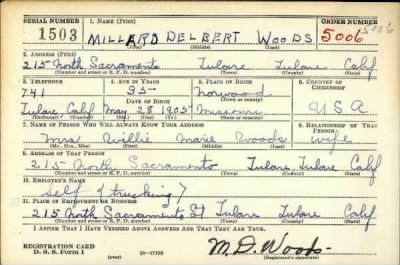 SERIAL NUMBER 1. NAME (Print) ORDER NUMBER
1503 MILLARD DELBERT WOODS 5006 5006
(First) (Middle) (Last)
2. ADDRESS (Print)
215 North Sacramento Tulare Tulare Calif
(Number and street or R. F. D. number) (Town) (County) (State)
3. TELEPHONE 4. AGE IN YEARS 5. PLACE OF BIRTH 6. COUNTRY OF CITIZENSHIP
741 35 Norwood
DATE OF BIRTH (Town or county)
Tulare Calif May 28 1905 Missouri U S A
(Mo.) (Day) (Yr.) (State or country)
7. NAME OF PERSON WHO WILL ALWAYS KNOW YOUR ADDRESS 8. RELATIONSHIP OF THAT PERSON
Mrs Willie Marie Woods wife
(Mr., Mrs., Miss) (First) (Middle) (Last)
9. ADDRESS OF THAT PERSON
215 North Sacramento Tulare Tulare Calif
(Number and street or R. F. D. number) (Town) (County) (State)
10. EMPLOYER'S NAME
Self (trucking)
11. PLACE OF EMPLOYMENT OR BUSINESS
215 North Sacramento St Tulare Tulare Calif
(Number and street or R. F. D. number) (Town) (County) (State)
I AFFIRM THAT I HAVE VERIFIED ABOVE ANSWERS AND THAT THEY ARE TRUE.
REGISTRATION CARD M.D. Woods
D. S. S. Form 1 (over) (Registrant's signature)